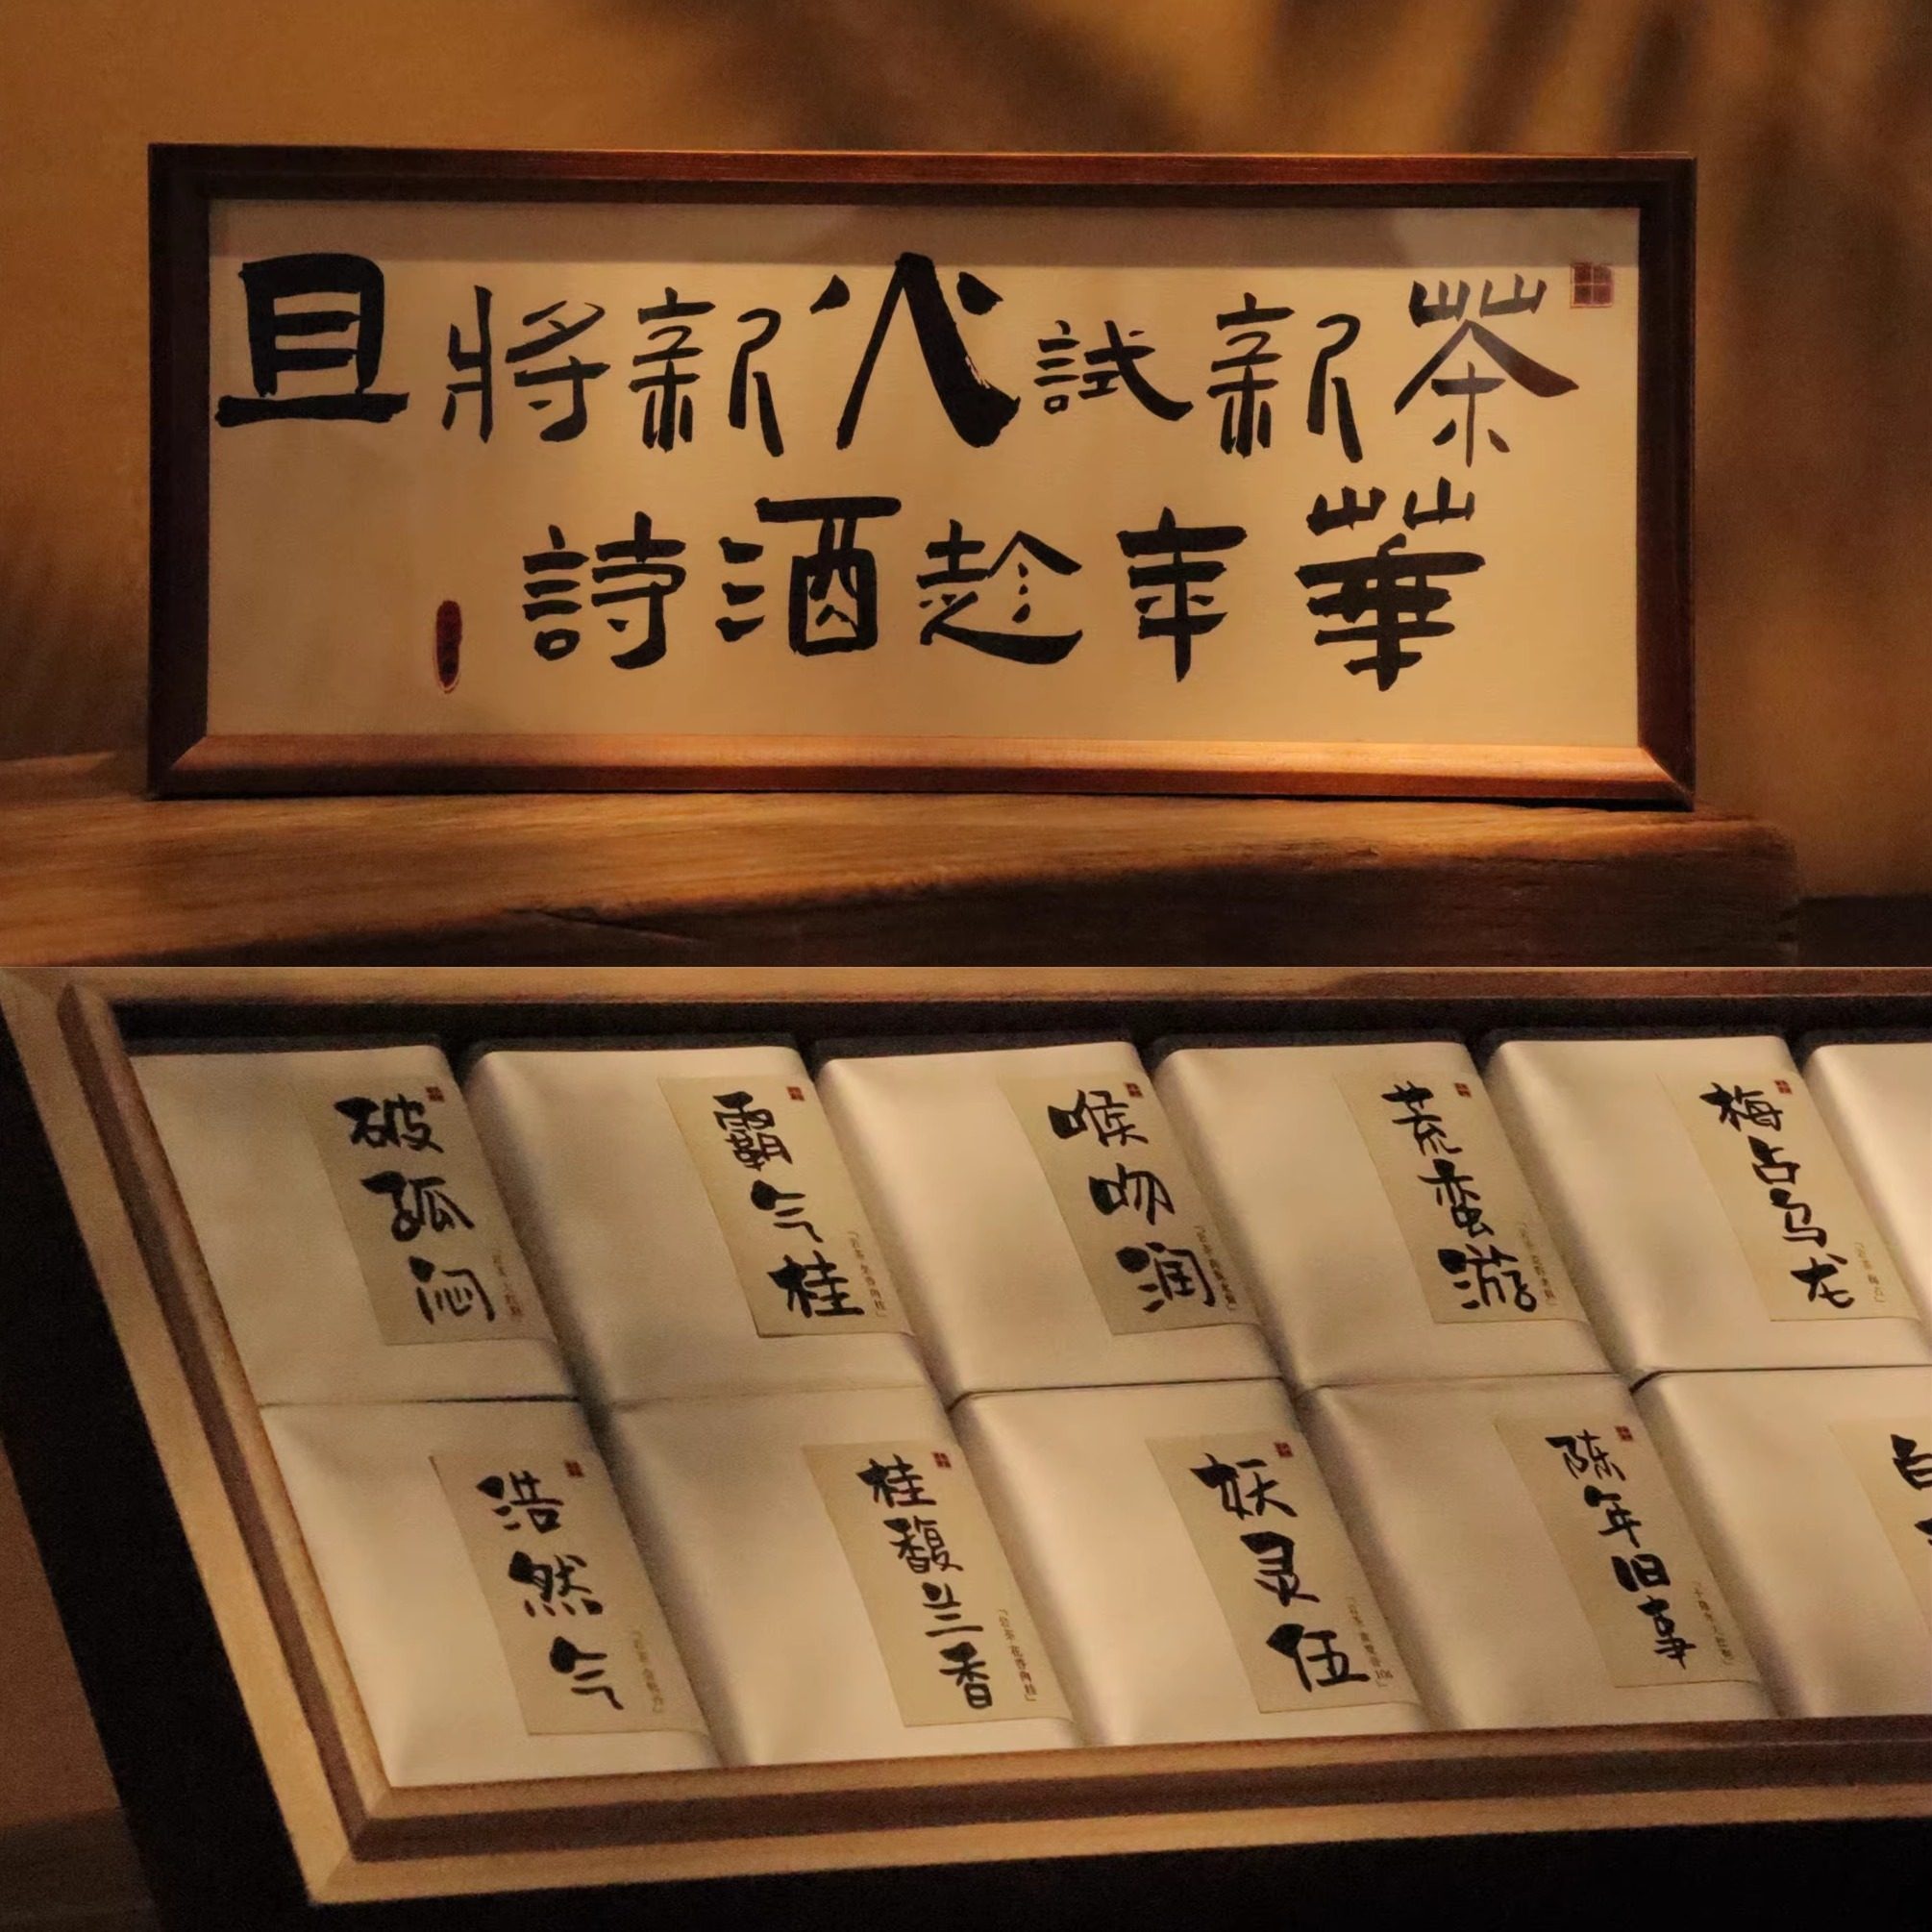 且將新火試新茶
詩酒趁年華
破孤闷
霸气桂
喉吻润
荒蛮游
梅占乌龙
浩然气
桂馥兰香
妖灵伍
陈年旧事